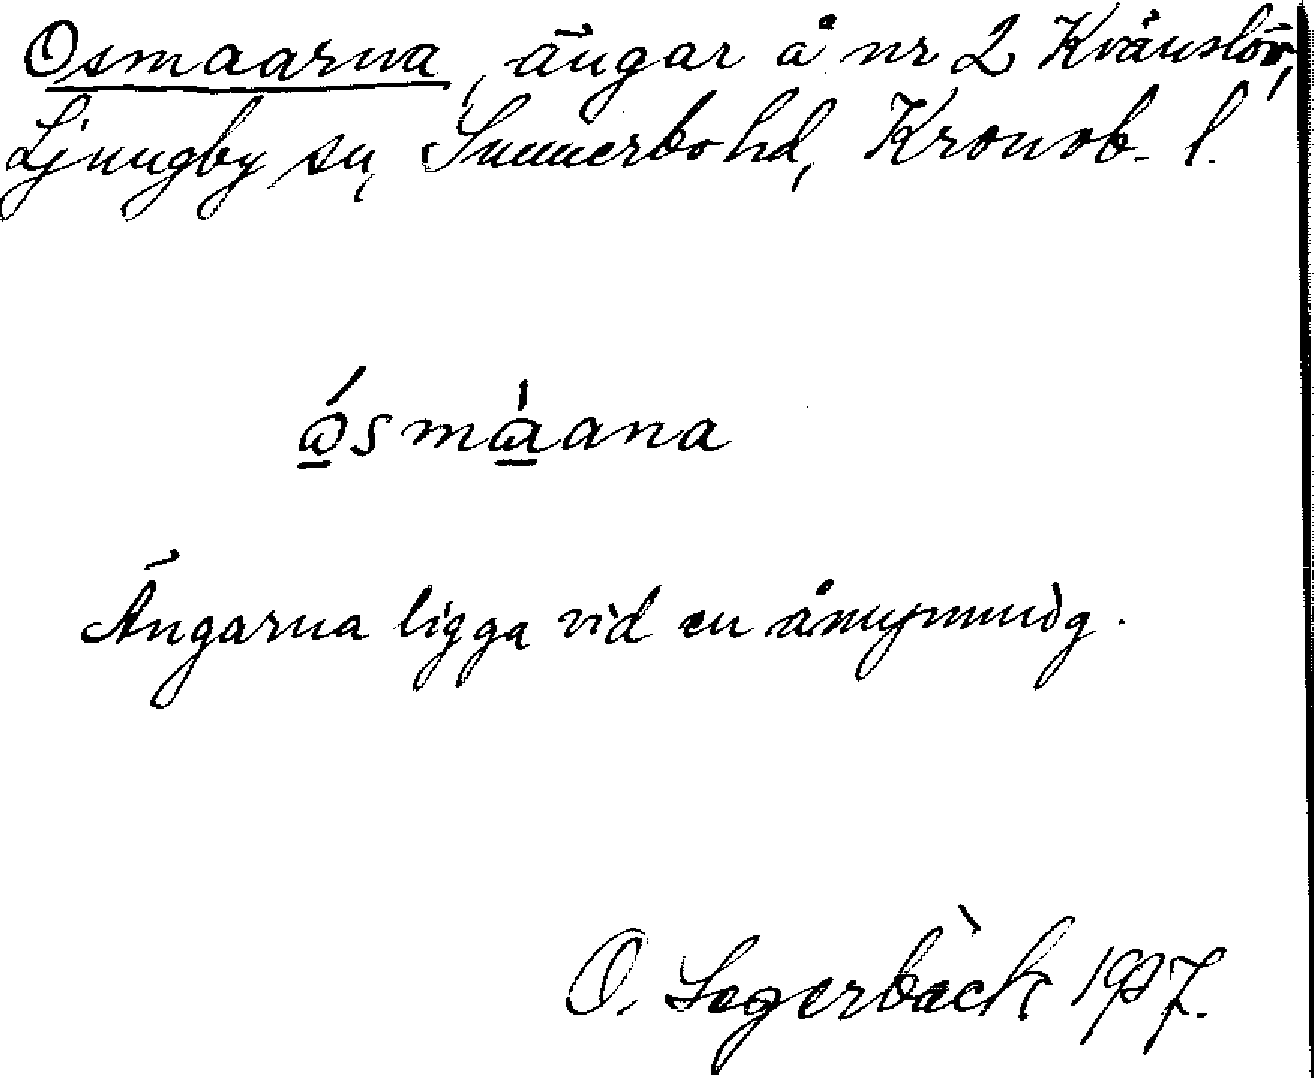 Osmaarna, ängar å nr 2 Kvänslöv,
Ljungby sn, Sunnerbo hd, Kronob. l.
ósmàana
Ängarna ligga vid en åmynning.
O. Segerbäck 1927.